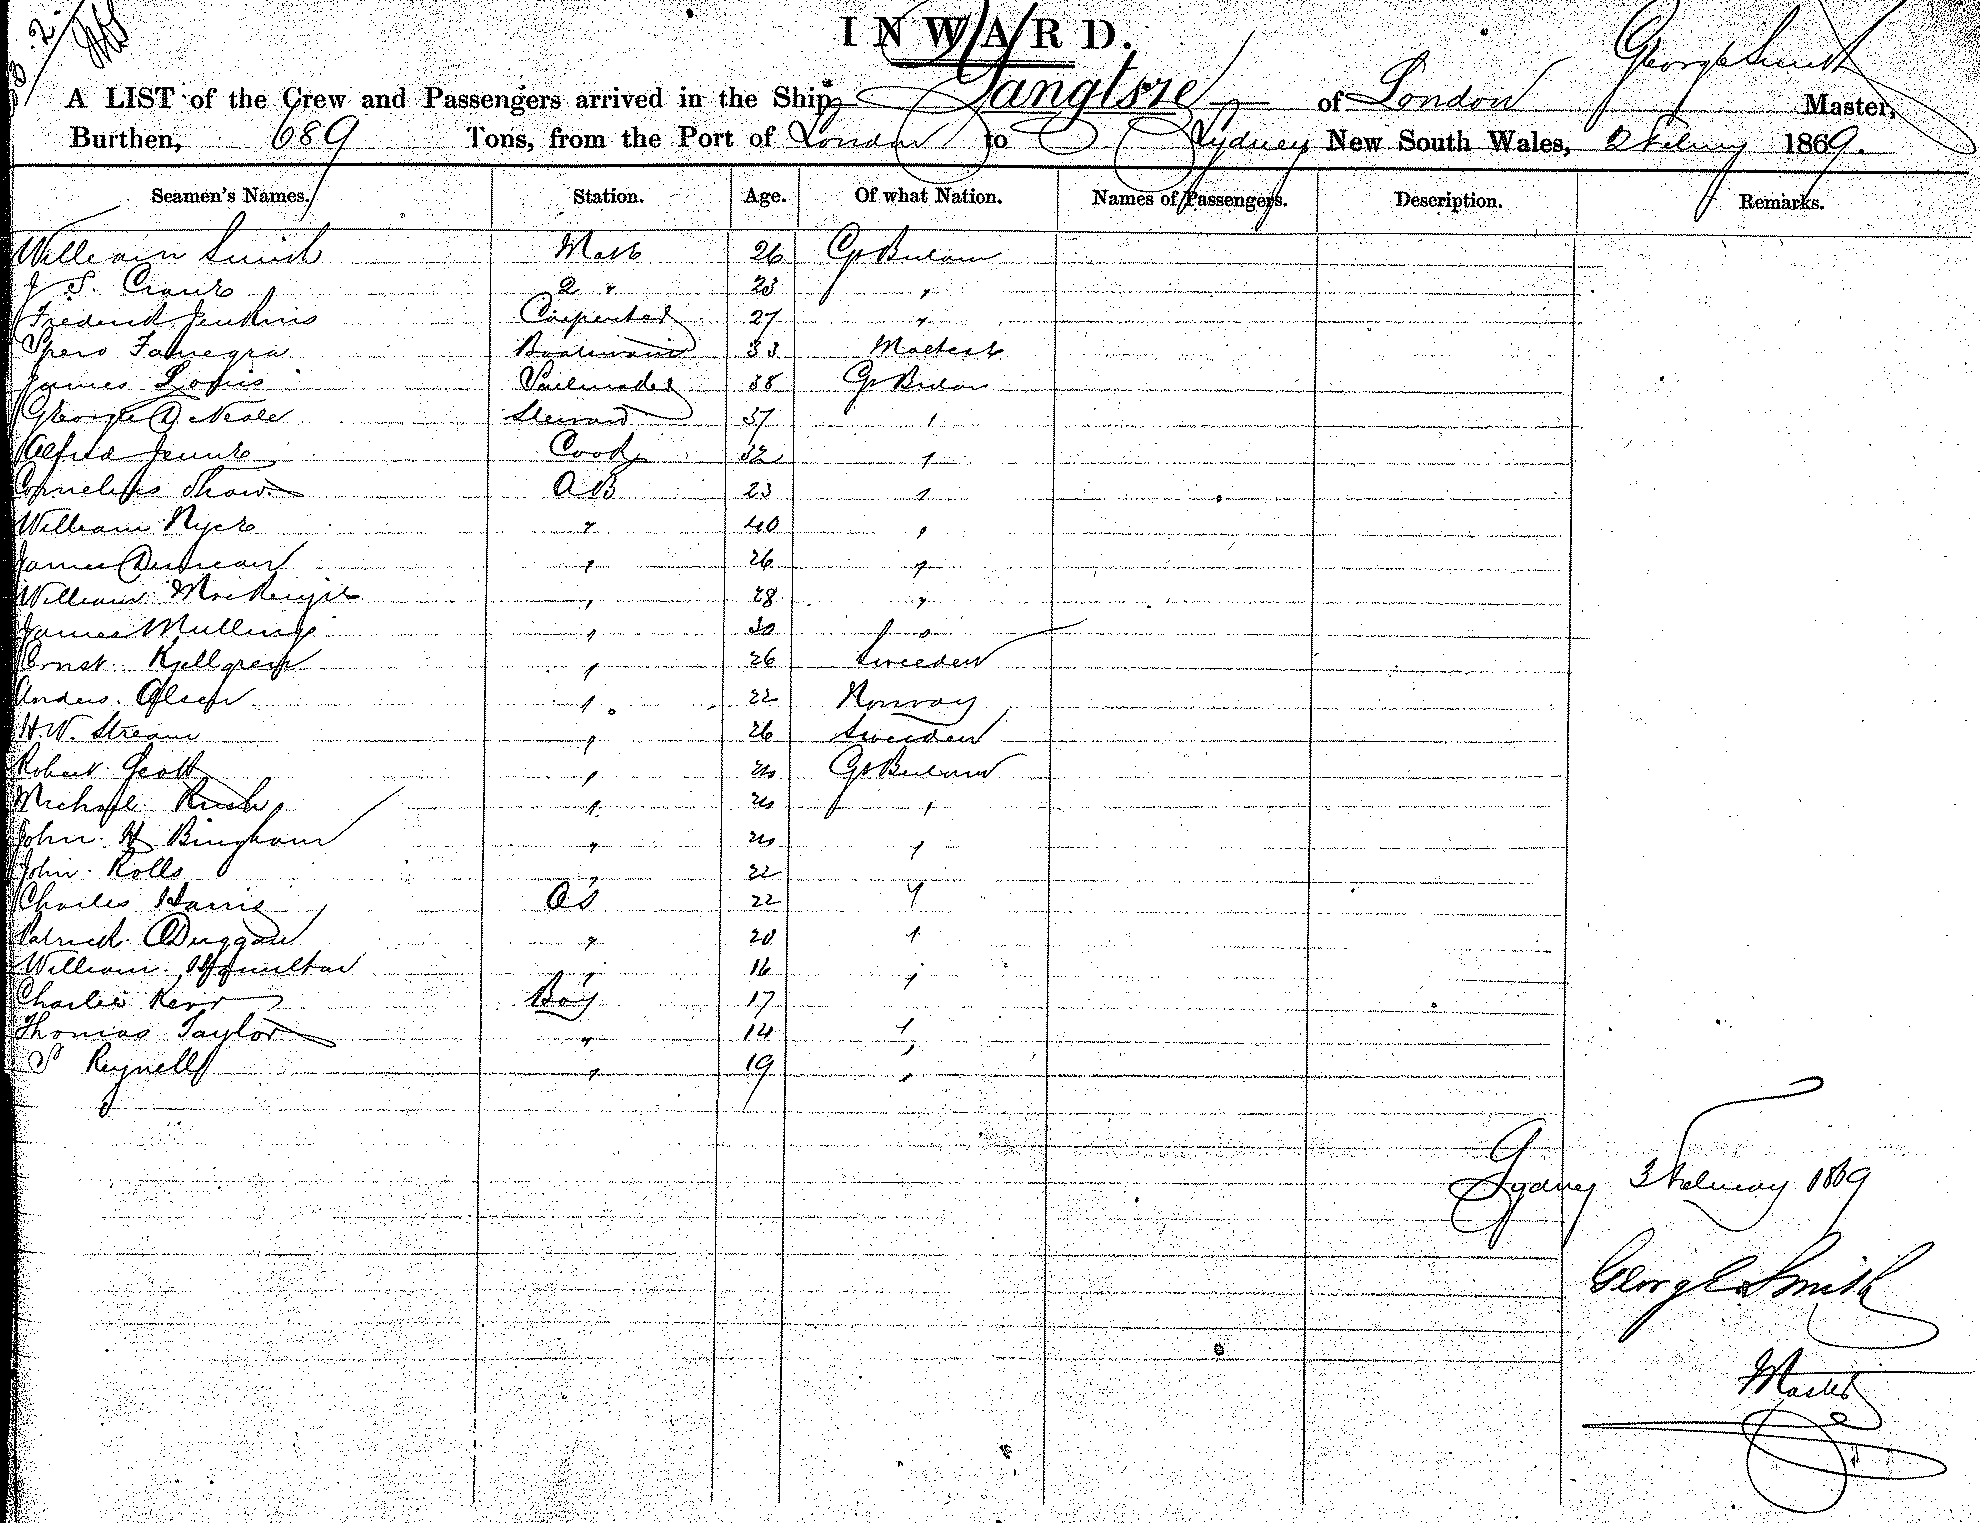 INWARD.
A LIST of the Crew and Passengers arrived in the Ship of London George Smith Master,
Burthen, 689 Tons, from the Port of London to Sydney New South Wales, 2 Februy 1869.
Seamen's Names. Station. Age. Of what Nation. Names of Passengers. Description. Remarks.
William Smith Mate 26 Gt Britain
J S. 2 " 23 "
Frederick Jenkins Carpenter 27 "
Spero Boatswain 33 Maltese
James Louis Sailmaker 38 Gt Britain
George Neale Steward 37 "
Alfred Cook 32 "
Cornelius Shaw AB 23 "
William " 40 "
James Duncan " 26 "
William MacKenzie " 28 "
James Mullings " 30 "
Ernst Kjellgren " 26 Sweeden
Anders Olsen " 22 Norway
H.W. Stream " 26 Sweeden
Robert Scott " Gt Britain
Michael Rush " "
John H Bingham " "
John Rolls " 22
Charles Harris OS 22 "
Patrick Duggan " 20 "
William Hamilton " 16 "
Charlie Kerr Boy 17
Thomas Taylor " 14 "
S Reynell " 19 "
Sydney 3 February 1869
George Smith
Master